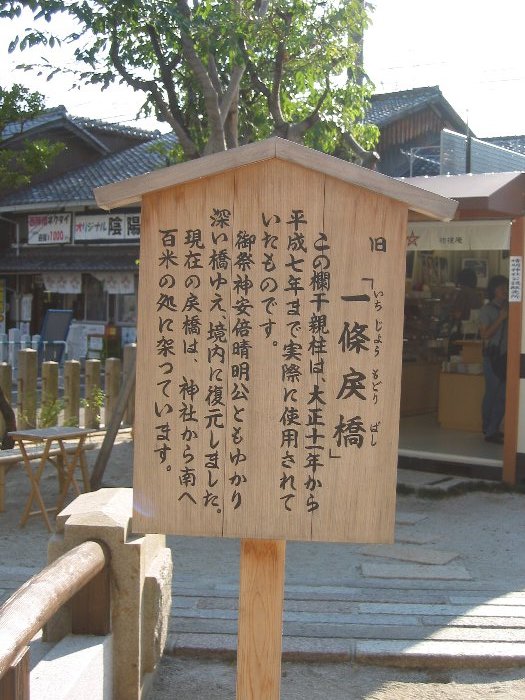 旧「一條戻橋」
いち じょう もどり ばし
この欄干親柱は、大正十一年から
平成七年まで実際に使用されて
いたものです。
御祭神安倍晴明公ともゆかり
深い橋ゆえ、境内に復元しました。
現在の戻橋は、神社から南へ
百米の処に架っています。
オリジナル 陰陽
¥1000